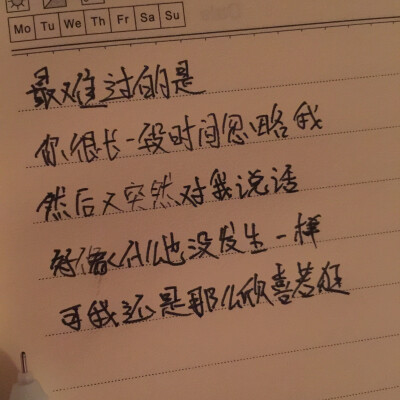 Mo Tu We Th Fr Sa Su
最难过的是
你很长一段时间忽略我
然后又突然对我说话
好像什么也没发生一样
可我还是那么欣喜若狂